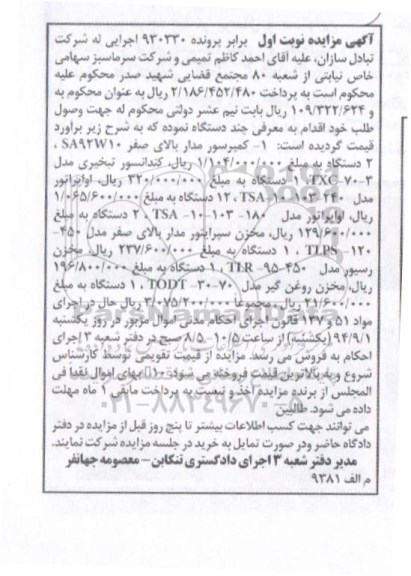 آگهی مزایده نوبت اول برابر پرونده ۹۳۰۳۳۰ اجرایی له شرکت
تبادل سازان، علیه آقای احمد کاظم تمیمی و شرکت سرماسبز سهامی
خاص نیابتی از شعبه ۸۰ مجتمع قضایی شهید صدر محکوم علیه
محکوم است به پرداخت ۲/۱۸۶/۴۵۲/۴۸۰ ریال به عنوان محکوم به
و ۱۰۹/۳۲۲/۶۲۴ ریال بابت نیم عشر دولتی محکوم له جهت وصول
طلب خود اقدام به معرفی چند دستگاه نموده که به شرح زیر برآورد
قیمت گردیده است: ۱- کمپرسور مدار بالای صفر SA92W10 ،
۲ دستگاه به مبلغ ۱/۱۰۴/۰۰۰/۰۰۰ ریال، کندانسور تبخیری مدل
TXC-۷۰-۳، ۱ دستگاه به مبلغ ۳۲۰/۰۰۰/۰۰۰ ریال، اواپراتور
مدل TSA-۱۰-۱۰۳-۲۴۰ ، ۱۲ دستگاه به مبلغ ۱/۰۶۵/۶۰۰/۰۰۰
ریال، اواپراتور مدل TSA -۱۰-۱۰۳- ۱۸۰ ، ۲ دستگاه به مبلغ
۱۲۹/۶۰۰/۰۰۰ ریال، مخزن سپراتور مدار بالای صفر مدل ۴۵۰-
TLPS -۱۲۰ ، ۱ دستگاه به مبلغ ۲۳۷/۶۰۰/۰۰۰ ریال، مخزن
رسیور مدل TLR -۹۵-۴۵۰ ، ۱ دستگاه به مبلغ ۱۹۶/۸۰۰/۰۰۰
ریال، مخزن روغن گیر مدل TODT -۳۰-۷۰ ، ۱ دستگاه به مبلغ
۲۱/۶۰۰/۰۰۰ ریال، مجموعا ۳/۰۷۵/۲۰۰/۰۰۰ ریال حال در اجرای
مواد ۵۱ و ۱۳۷ قانون اجرای احکام مدنی اموال مزبور در روز یکشنبه
۹۴/۹/۱ (یکشنبه) از ساعت ۱۰/۵- ۸/۵ صبح در دفتر شعبه ۳ اجرای
احکام به فروش می رسد. مزایده از قیمت تقویمی توسط کارشناس
شروع و به بالاترین قیمت فروخته می شود. ۱۰٪ بهای اموال نقدا فی
المجلس از برنده مزایده اخذ و نسبت به پرداخت مابقی ۱ ماه مهلت
داده می شود. طالبین
می توانند جهت کسب اطلاعات بیشتر تا پنج روز قبل از مزایده در دفتر
دادگاه حاضر ودر صورت تمایل به خرید در جلسه مزایده شرکت نمایند.
مدیر دفتر شعبه ۳ اجرای دادگستری تنکابن- معصومه جهانفر
م الف ۹۳۸۱
ParsNamadData
۰۲۱-۸۸۳۴۹۶۷۰-۵